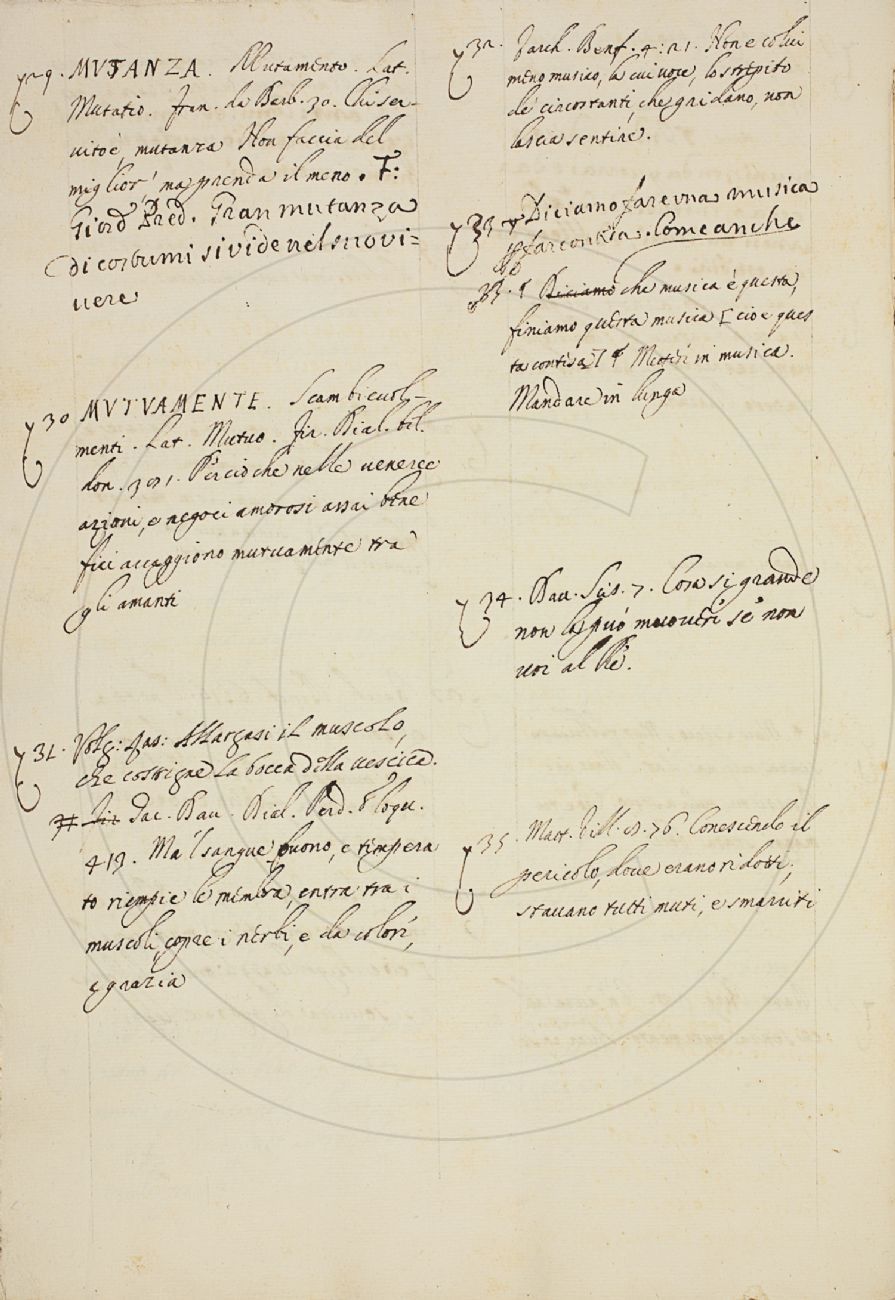 29. MUTANZA. Mutamento. Lat.
Mutatio. Fran. da Barb. 30. Chi ser-
vito è, mutanza Non faccia del
miglior, ma prenda il meno. F:
Giord. Pred. Gran mutanza
di costumi si vide nel suo vi=
vere
30 MVTVAMENTE. Scambievol-
menti. Lat. Mutuo. Fir. Dial. bel.
don. 391. Perciochè nelle veneree
azioni, e negoci amorosi assai bene
fici accaggiono mutuamente tra
gli amanti
31. Volg: Ras: Allargasi il muscolo,
che costrigne la bocca della vescica.
Fir Dac. Dav. Perd. eloqu.
413. Ma 'l sangue buono, e tempera
to riempie le membra, entra tra i
muscoli, copre i nerbi, e da colori,
e grazia
32. Varch. Benf. 4: 21. Non è colui
meno musico, la cui voce, lo strepito
de' circostanti, che gridano, non
lascia sentire.
33 Diciamo fare una musica
. Come anche
33. ¶ Diciamo che musica è questa,
finiamo questa musica [cioè ques
ta contesa] ¶ Metter in musica.
Mandare in lunga
34. Dav. Scis. 7. Cosa si grande
non la può muoveri se non
voi al Rè.
35. Matt. Vill. 9. 76. Conescendo il
pericolo, dove erano ridotti,
stavano tutti muti, e smarriti